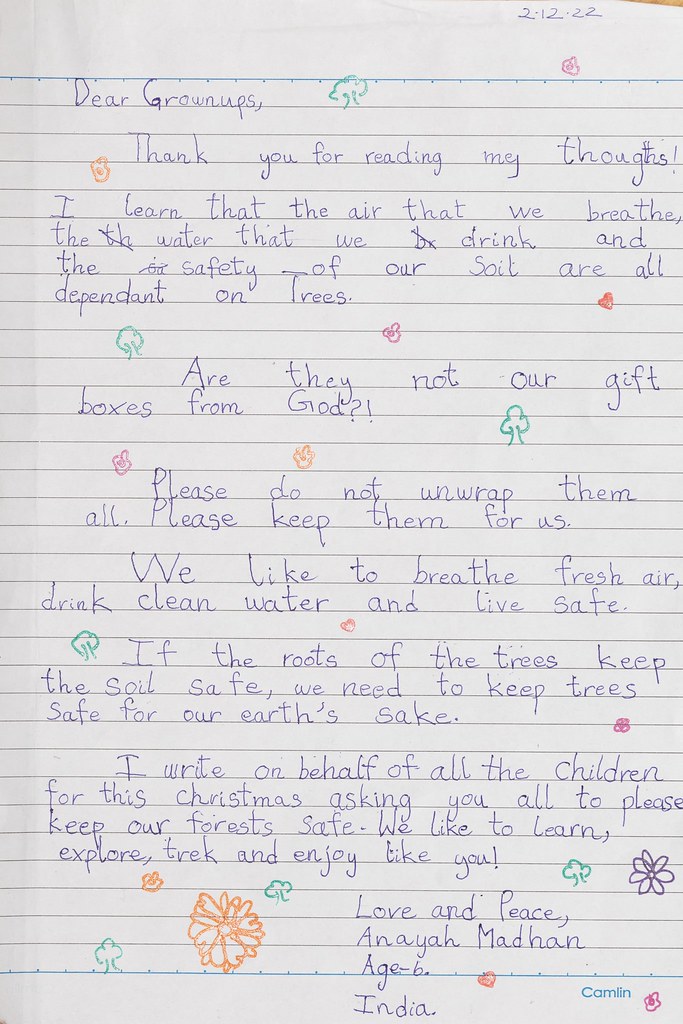 2.12.22
Dear Grownups,
Thank you for reading my thougths!
I learn that the air that we breathe,
the th water that we b drink and
the safety of our Soil are all
dependant on Trees.
Are they not our gift
boxes from God?!
Please do not unwrap them
all. Please keep them for us.
We like to breathe fresh air,
drink clean water and live safe.
If the roots of the trees keep
the soil safe, we need to keep trees
safe for our earth's sake.
I write on behalf of all the children
for this christmas asking you all to please
keep our forests safe. We like to learn,
explore, trek and enjoy like you!
Love and Peace,
Anayah Madhan
Age-6.
Camlin
India.